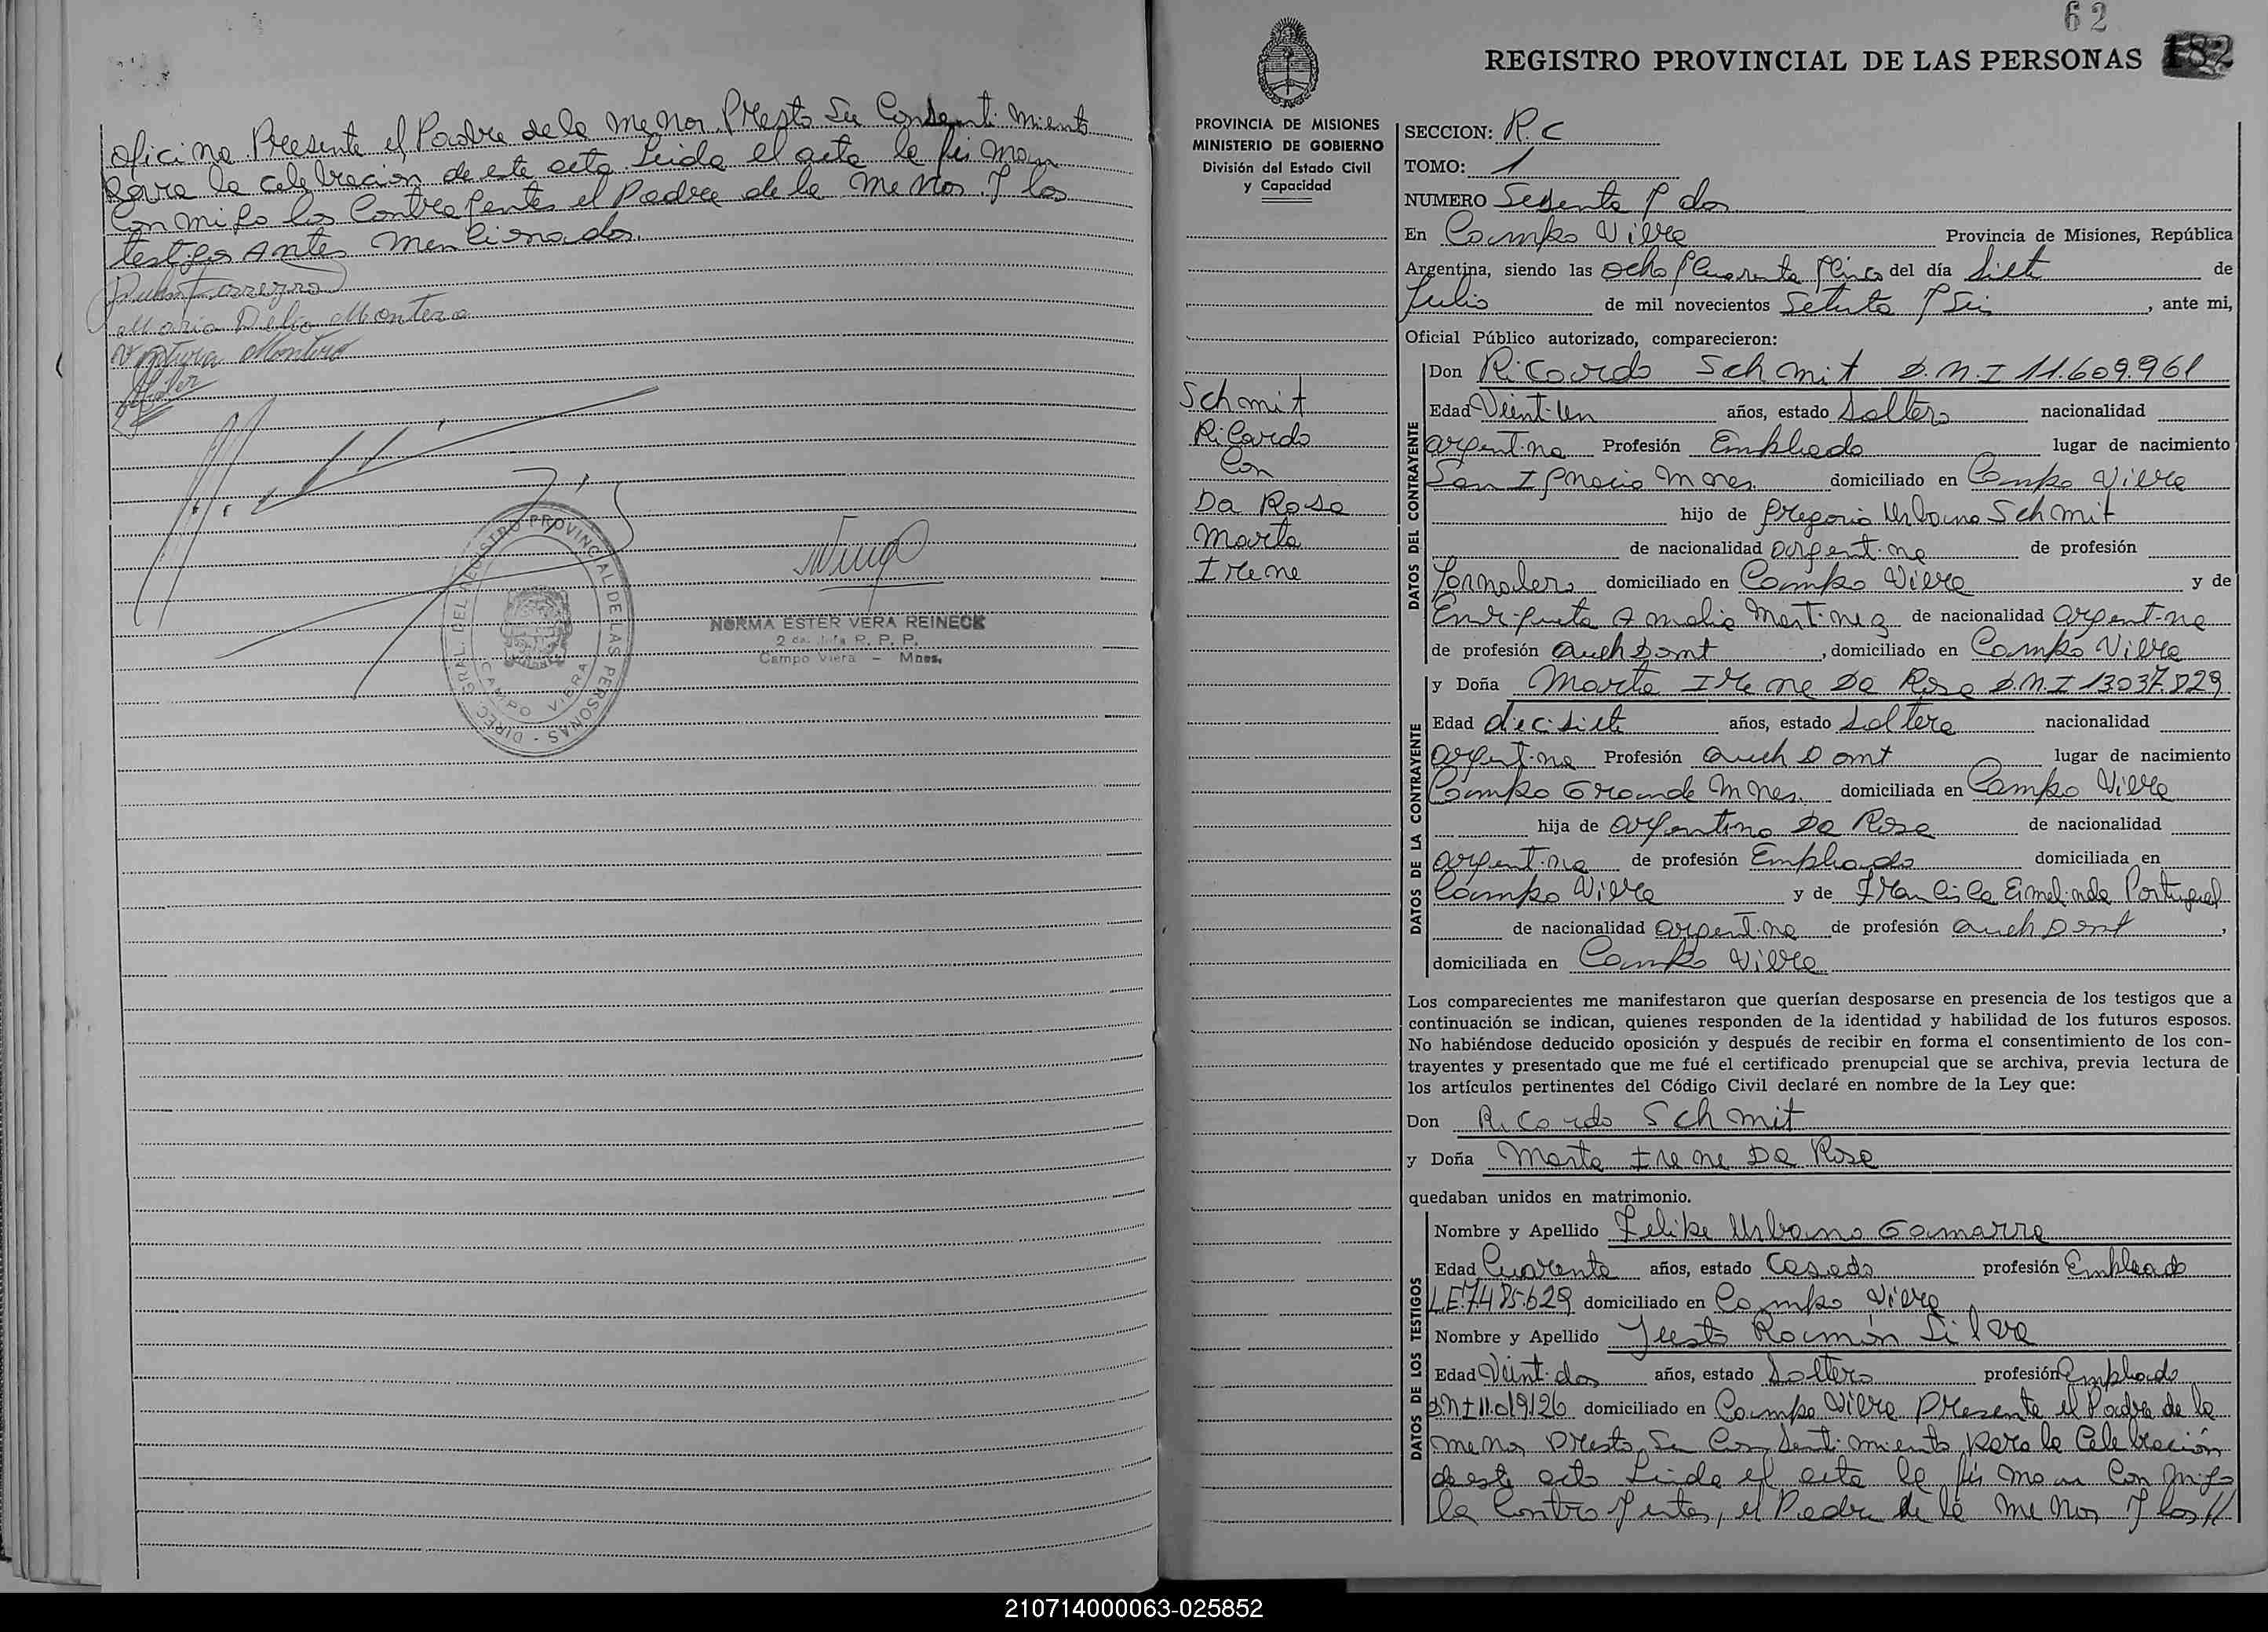 oficina Presente el Padre de la menor Presto Su Consentimiento
Para la celebracion de este acto Leida el acta la firman
Conmigo los Contrayentes el Padre de la menor y los
testigos Antes mencionados.
Maria Delia Montero
Ventura Montero
REGISTRO PROVINCIAL DE LAS PERSONAS - DIREC. GRAL. DEL
CAMPO VIERA
NORMA ESTER VERA REINECK
2da. Jefa R. P. P.
Campo Viera - Mnes.
62
REGISTRO PROVINCIAL DE LAS PERSONAS 182
PROVINCIA DE MISIONES
MINISTERIO DE GOBIERNO
División del Estado Civil
y Capacidad
Schmit
Ricardo
Con
Da Rosa
Marta
Irene
SECCION: R.C
TOMO: 1
NUMERO Sesenta y dos
En Campo Viera Provincia de Misiones, República
Argentina, siendo las ocho y Cuarenta y Cinco del día Siete de
Julio de mil novecientos Setenta y Seis, ante mi,
Oficial Público autorizado, comparecieron:
DATOS DEL CONTRAYENTE
Don Ricardo Schmit D.N.I 11.609.961
Edad Veintiun años, estado Soltero nacionalidad
argentina Profesión Empleado lugar de nacimiento
San Ignacio Mnes. domiciliado en Campo Viera
hijo de Gregorio Urbano Schmit
de nacionalidad argentina de profesión
Jornalero domiciliado en Campo Viera y de
Enriqueta Amalia Martinez de nacionalidad argentina
de profesión Queh Domt, domiciliado en Campo Viera
DATOS DE LA CONTRAYENTE
y Doña Marta Irene Da Rosa D.N.I 13.037.829
Edad diecisiete años, estado Soltera nacionalidad
argentina Profesión Queh Domt lugar de nacimiento
Campo Grande Mnes. domiciliada en Campo Viera
hija de argentino Da Rosa de nacionalidad
argentina de profesión Empleado domiciliada en
Campo Viera y de Francisca Ermelinda Portugal
de nacionalidad argentina de profesión Queh Domt,
domiciliada en Campo Viera
Los comparecientes me manifestaron que querían desposarse en presencia de los testigos que a
continuación se indican, quienes responden de la identidad y habilidad de los futuros esposos.
No habiéndose deducido oposición y después de recibir en forma el consentimiento de los con-
trayentes y presentado que me fué el certificado prenupcial que se archiva, previa lectura de
los artículos pertinentes del Código Civil declaré en nombre de la Ley que:
Don Ricardo Schmit
y Doña Marta Irene Da Rosa
quedaban unidos en matrimonio.
DATOS DE LOS TESTIGOS
Nombre y Apellido Felipe Urbano Gamarra
Edad Cuarenta años, estado Casado profesión Empleado
L.E.7.485.629 domiciliado en Campo Viera
Nombre y Apellido Justo Ramón Silva
Edad Veintidos años, estado Soltero profesión Empleado
DNI 11.019.126 domiciliado en Campo Viera Presente el Padre de la
menor Presto Su Consentimiento para la Celebración
de este acto Leida el acta la firman Conmigo
los Contrayentes, el Padre de la menor y los //
210714000063-025852